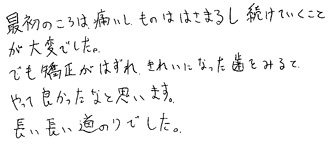 最初のころは痛いし、ものははさまるし続けていくこと
が大変でした。
でも矯正がはずれ、きれいになった歯をみると、
やって良かったなと思います。
長い長い道のりでした。